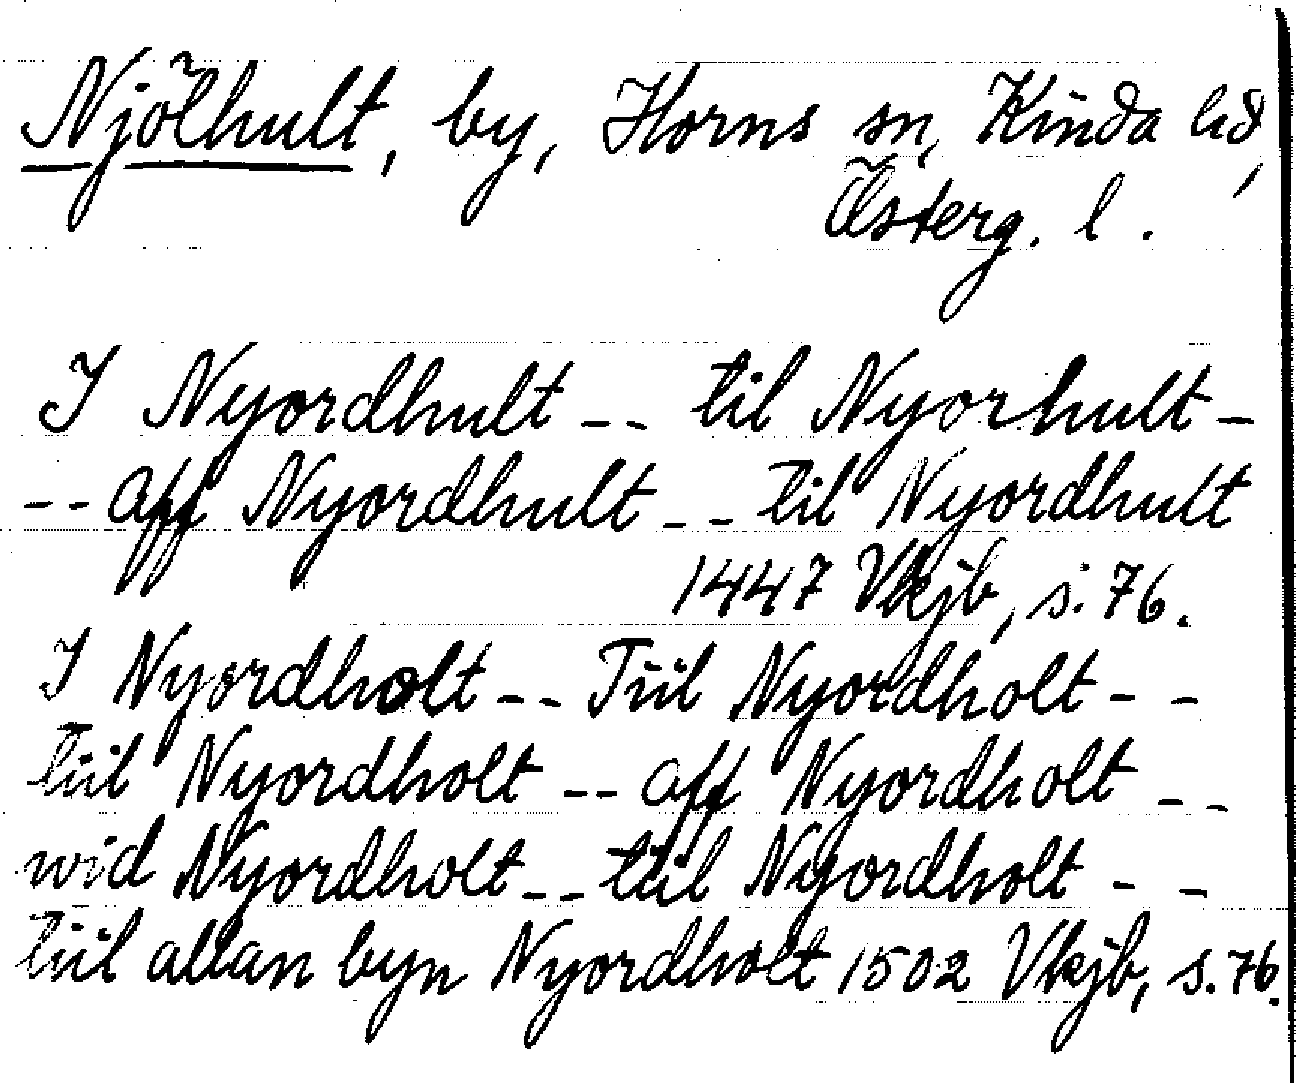 Njölhult, by, Horns sn, Kinda hd,
Österg. l.
I Nyordhult -- til Nyorhult -
-- aff Nyordhult -- til Nyordhult
1447 Vkjb, s. 76.
I Nyordholt -- Tiil Nyordholt - -
tiil Nyordholt -- aff Nyordholt --
wid Nyordholt -- tiil Nyordholt - -
tiil allan byn Nyordholt 1502 Vkjb, s. 76.